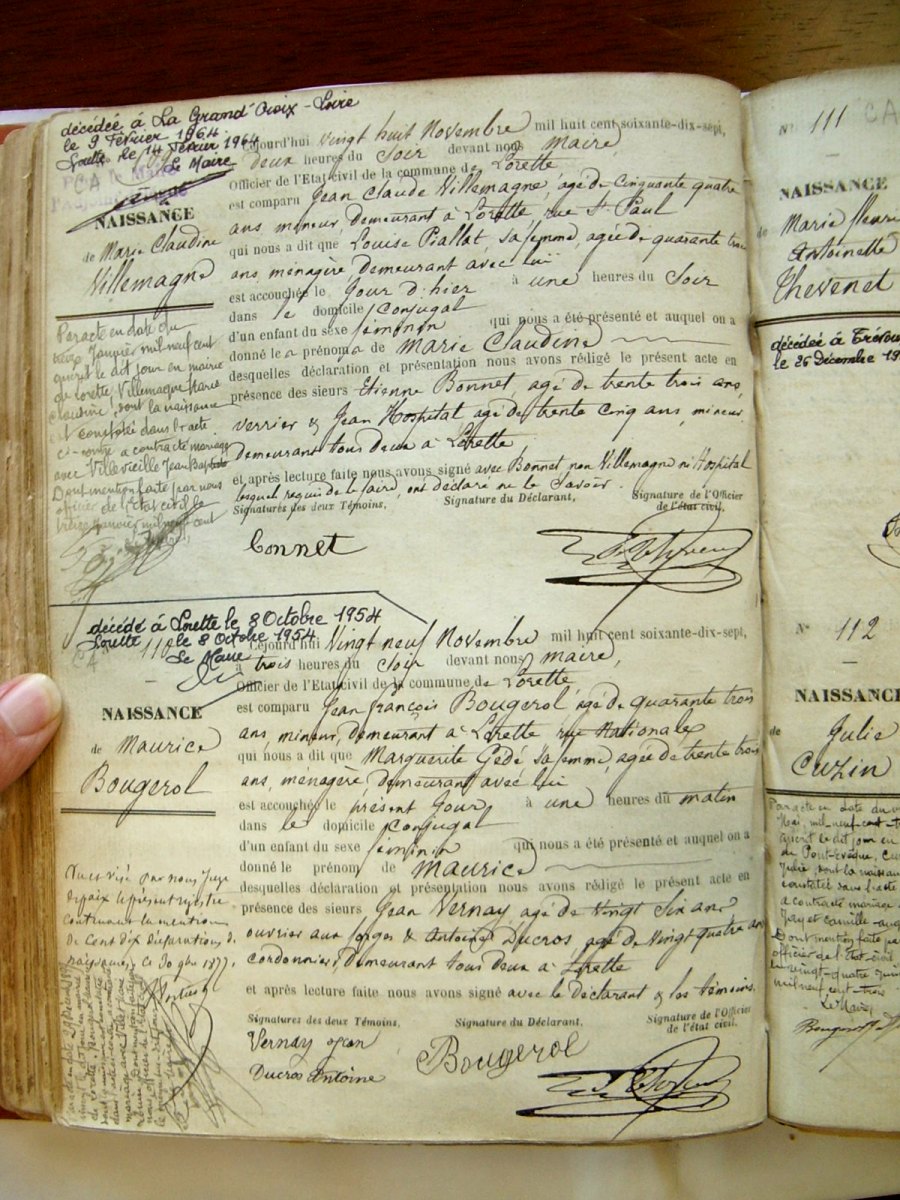 décédée à La Grand'Croix - Loire
le 9 Février 1964
Lorette le 14 Février 1964
Le Maire
CA
NAISSANCE
de Marie Claudine
Villemagne
Par acte en date du
treize Janvier mil neuf cent
inscrit le dit jour en mairie
de Lorette, Villemagne Marie
Claudine, dont la naissance
est constatée dans l'acte
ci-contre a contracté mariage
avec Villevieille Jean Baptiste
Dont mention faite par nous
officier de l'Etat civil le
treize Janvier mil neuf cent
Cejourd'hui vingt huit Novembre mil huit cent soixante-dix-sept,
à deux heures du Soir devant nous maire
Officier de l'Etat civil de la commune de Lorette
est comparu Jean Claude Villemagne, âgé de Cinquante quatre
ans, mineur, demeurant à Lorette, rue St Paul
qui nous a dit que Louise Piallat, sa femme, agée de quarante trois
ans, ménagère, demeurant avec lui
est accouchée le Jour d'hier à une heures du Soir
dans le domicile conjugal
d'un enfant du sexe féminin qui nous a été présenté et auquel on a
donné le prénom de Marie Claudine
desquelles déclaration et présentation nous avons rédigé le présent acte en
présence des sieurs Etienne Bonnet, agé de trente trois ans,
verrier & Jean Hospital agé de trente cinq ans, mineur
demeurant tous deux à Lorette
et après lecture faite nous avons signé avec Bonnet, non Villemagne ni Hospital
lesquels requis de le faire, ont déclaré ne le Savoir.
Signatures des deux Témoins. Signature du Déclarant, Signature de l'Officier
de l'état civil.
Bonnet
décédé à Lorette le 8 Octobre 1954
Lorette le 8 Octobre 1954
CA 110
Le Maire
NAISSANCE
de Maurice
Bougerol
Vu et visé par nous Juge
de paix le présent registre
contenant la mention
de Cent dix déclarations de
naissances, ce 30 9bre 1877.
Cejourd'hui Vingt neuf Novembre mil huit cent soixante-dix-sept,
à trois heures du Soir devant nous maire,
Officier de l'Etat civil de la commune de Lorette
est comparu Jean François Bougerol, agé de quarante trois
ans, mineur, demeurant à Lorette rue Nationale
qui nous a dit que Marguerite Gédé, sa femme, agée de trente trois
ans, ménagère, demeurant avec lui
est accouchée le présent Jour à une heures du matin
dans le domicile conjugal
d'un enfant du sexe féminin qui nous a été présenté et auquel on a
donné le prénom de Maurice
desquelles déclaration et présentation nous avons rédigé le présent acte en
présence des sieurs Jean Vernay agé de Vingt Six ans
ouvrier aux forges & Antoine Ducros, agé de Vingt quatre ans
Cordonnier, demeurant tous deux à Lorette
et après lecture faite nous avons signé avec le Déclarant & les témoins.
Signatures des deux Témoins. Signature du Déclarant. Signature de l'Officier
de l'état civil.
Vernay Jean
Bougerol
Ducros Antoine
N° 111 CA
NAISSANCE
de Marie
Antoinette
Thevenet
décédée à
le 26 Décembre
N° 112
NAISSANCE
de Julie
Cuzin
Par acte en date du
Mai, mil neuf cent
inscrit le dit jour en
de Pont-Evêque,
Julie, dont la naissance
constatée dans l'acte
a contracté mariage
Jayet Camille
Dont mention faite par
officier de l'état civil
le vingt-quatre
mil neuf cent trois
Le Maire,